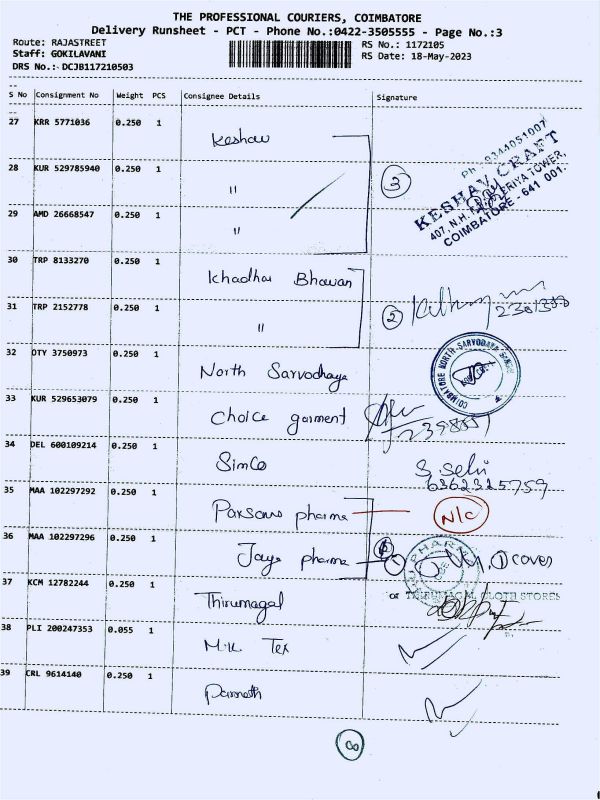 THE PROFESSIONAL COURIERS, COIMBATORE
Delivery Runsheet - PCT - Phone No.:0422-3505555 - Page No.:3
Route: RAJASTREET
Staff: GOKILAVANI
DRS No.: DCJB117210503
RS No.: 1172105
RS Date: 18-May-2023
S No Consignment No Weight PCS Consignee Details Signature
27 KRR 5771036 0.250 1 Keshav
28 KUR 529785940 0.250 1 "
29 AMD 26668547 0.250 1 "
3
Ph: 9344051007
KESHAV CRAFT
407, N.H. TOWER,
COIMBATORE - 641 001.
30 TRP 8133270 0.250 1 Khadhar Bhavan
31 TRP 2152778 0.250 1 "
2
32 OTY 3750973 0.250 1 North Sarvodhaya
COIMBATORE NORTH-SARVODAYA SANGH
33 KUR 529653079 0.250 1 Choice garment
34 DEL 600109214 0.250 1 Simco
S. Selvi
6362325759
35 MAA 102297292 0.250 1 pharma N/C
36 MAA 102297296 0.250 1 Jaya pharma 1 cover
37 KCM 12782244 0.250 1 Thirumagal
THIRUMAGAL CLOTH STORES
38 PLI 200247353 0.055 1 M.K Tex
39 CRL 9614140 0.250 1
8